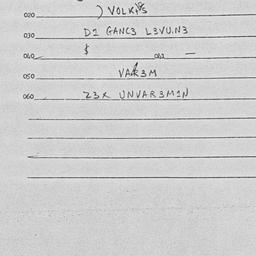 020 ) VOLK
030 D1 GANC3 L3VU.N3
040 $ 041 —
050 VAR3M
060 Z3X UNVAR3M1N